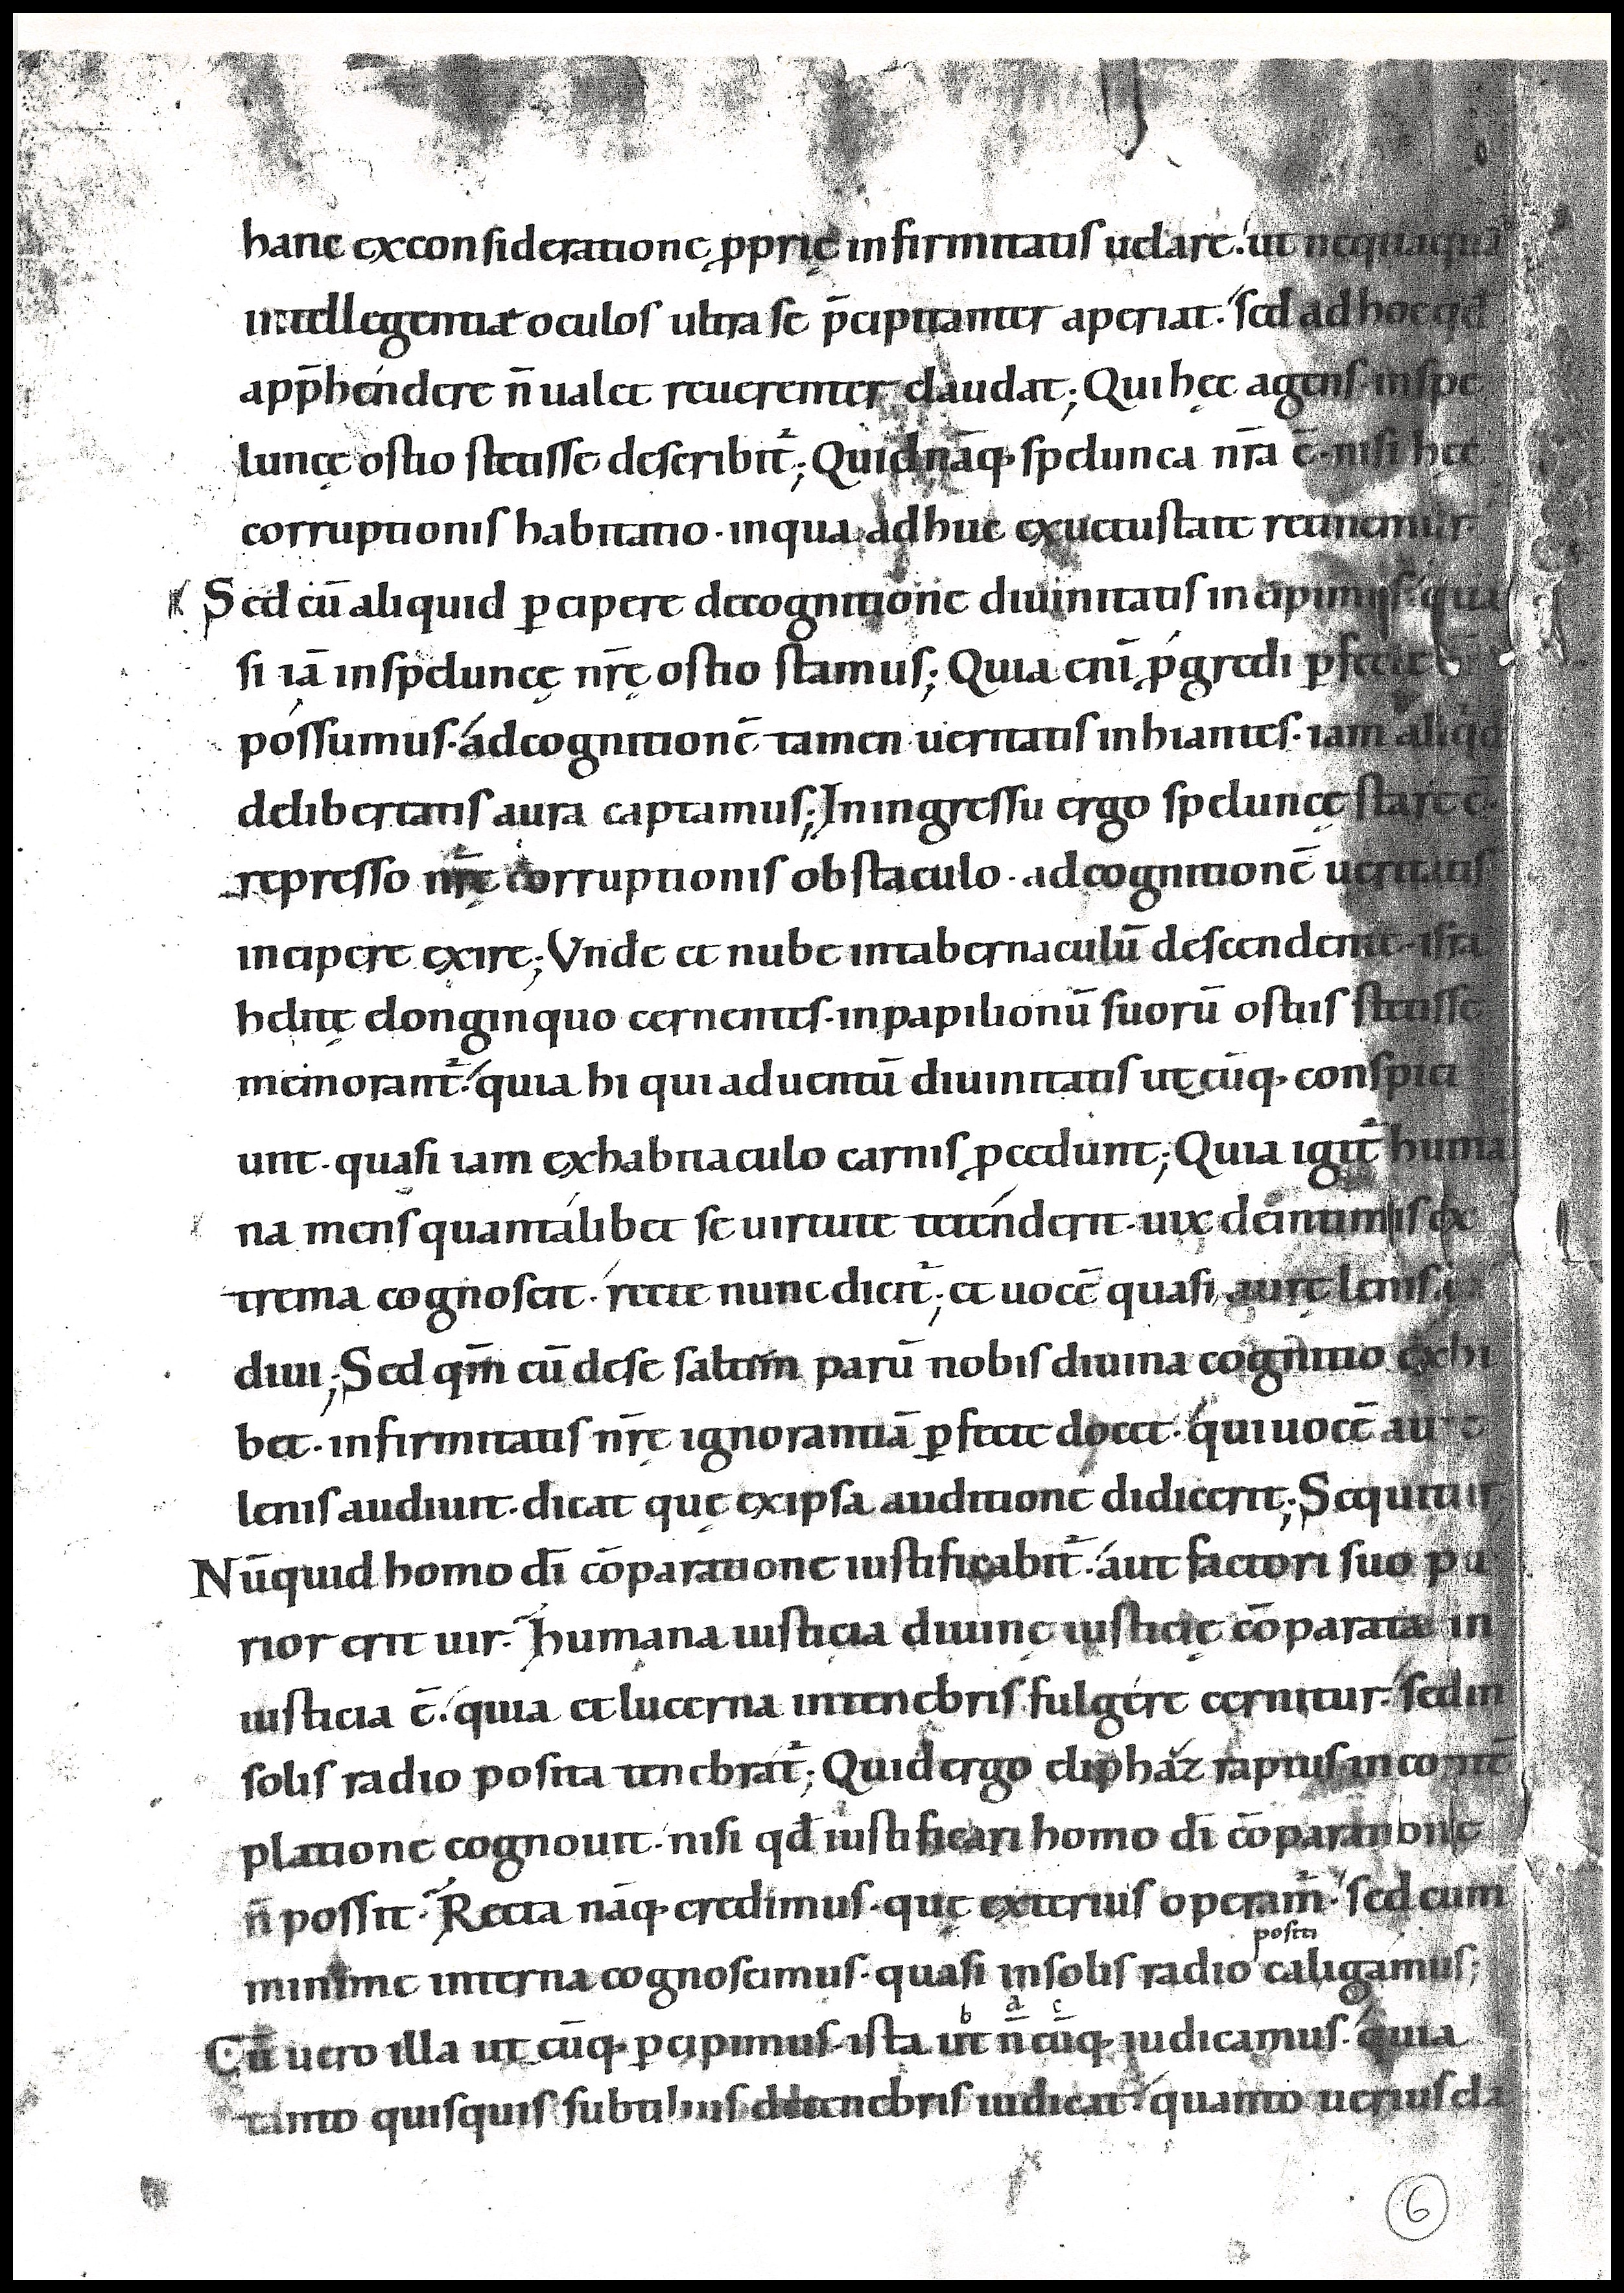 hanc exconsideratione ꝓprię infirmitatis uelare. ut nequaquā
intellegentiæ oculos ultra se p̄cipitanter aperiat. sed ad hoc qd
app̄hendere n̄ ualet reuerenter claudat; Qui hęc agens in spe
luncę ostio stetisse describit᷑; Quid nāq; spelunca nr̄a ē. nisi hec
corruptionis habitatio. inqua adhuc exuetustate retinemur.
Sed cū aliquid ꝑcipere decognitione diuinitatis incipimus. qua
si iā inspeluncę nr̄ę ostio stamus; Quia eni̅ ꝓgredi ꝑfecte
possumus. adcognitionē tamen ueritatis inhiantes. iam aliqd
delibertatis aura captamus; Iningressu ergo speluncę stare ē.
represso nr̄ę corruptionis obstaculo. adcognitionē ueritatis
incipere exire; Vnde et nube intabernaculū descendente. isra
helitę elonginquo cernentes. inpapilionū suorū ostiis stetisse
memorant᷑. quia hi qui aduentū diuinitatis utcūq; conspici
unt. quasi iam exhabitaculo carnis ꝓcedunt; Quia igit᷑ huma
na mens quantalibet se uirtute tetenderit. uix deintimis ex
trema cognoscit. recte nunc dicit᷑; et uocē quasi aurę lenis au
diui; Sed qm̄ cū dese saltem parū nobis diuina cognitio exhi
bet. infirmitatis nr̄ę ignorantiā ꝑfecte docet. qui uocē au
lenis audiuit. dicat quę exipsa auditione didicerit; Sequitur
Nūquid homo dī cōparatione iustificabit᷑. aut factori suo pu
rior erit uir. Humana iusticia diuinę iusticię cōparata in
iusticia ē. quia et lucerna intenebris fulgere cernitur. sed in
solis radio posita tenebrat᷑; Quid ergo eliphaz raptus in contē
platione cognouit. nisi qđ iustificari homo dī cōparatione
n̄ possit. Recta nāq; credimus. quę exterius operam᷑. sed cum
minime interna cognoscimus. quasi insolis radio positi caligamus;
Cū uero illa ut cūq; ꝑcipimus. ista b ut a n̄ c cūq; iudicamus. quia
tanto quisquis subtilius detenebris iudicat. quanto uerius cla
6